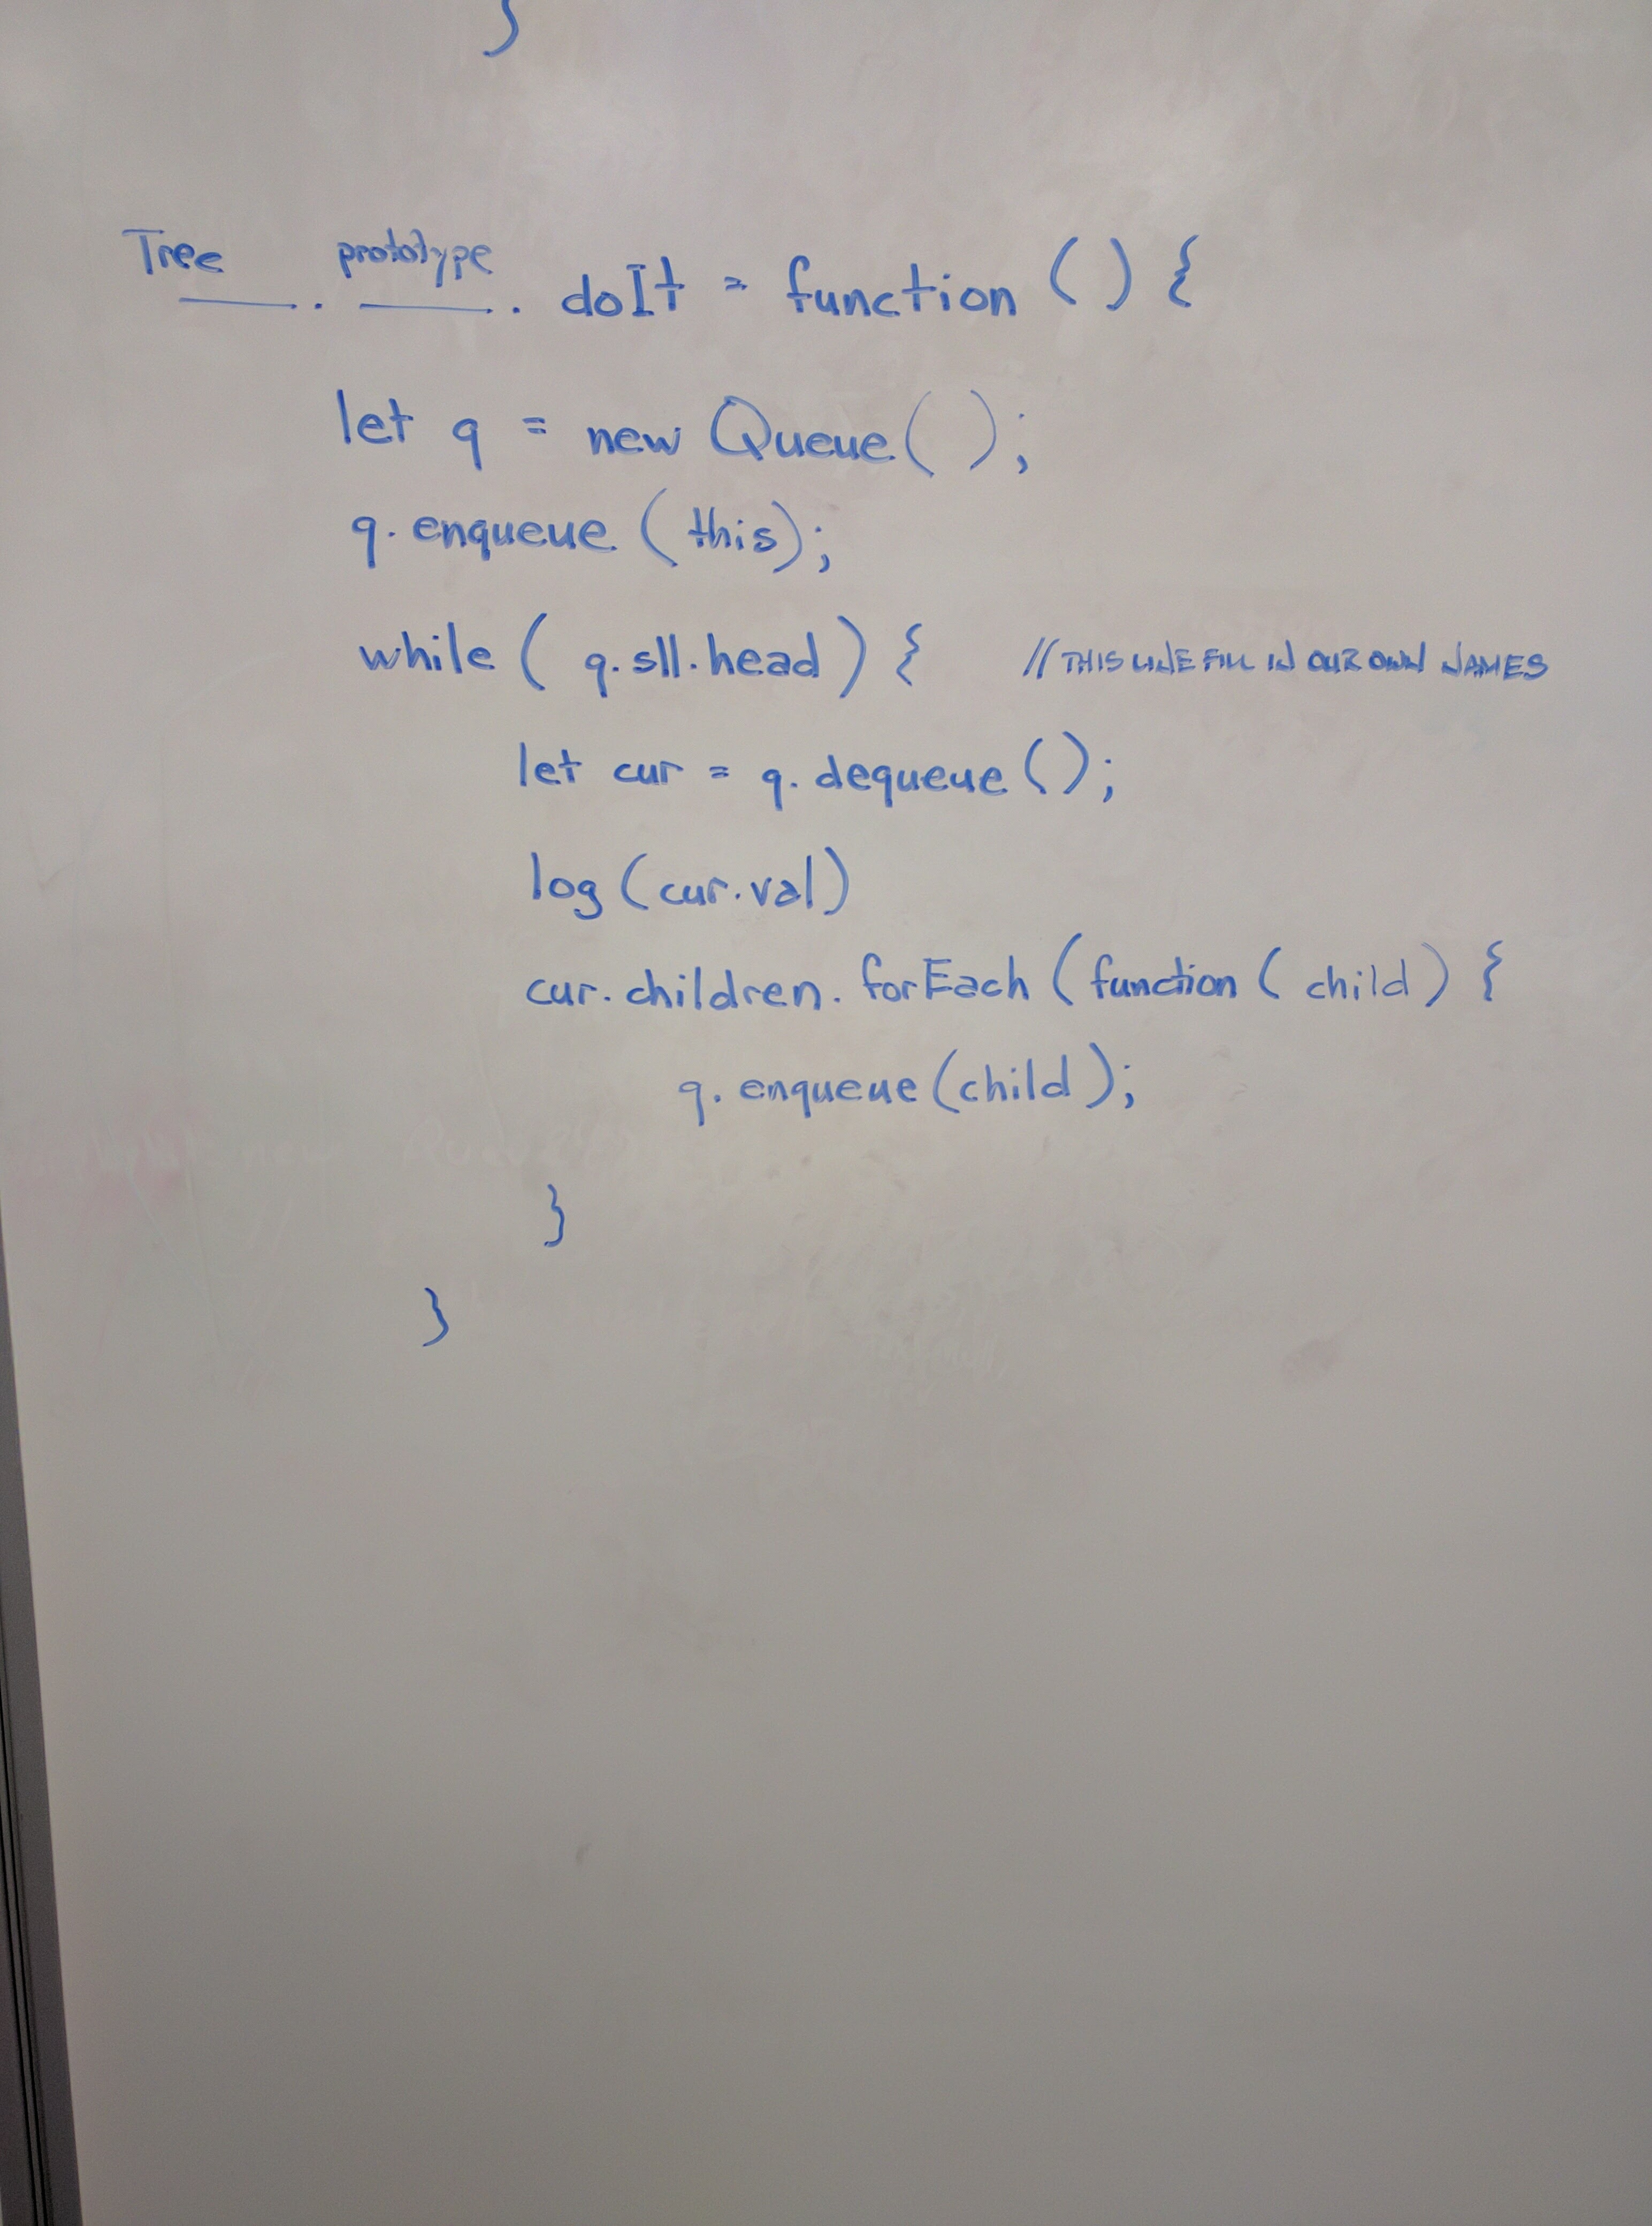 }
Tree prototype
____ . ____ . doIt = function () {
let q = new Queue();
q.enqueue (this);
while ( q.sll.head ) { // THIS LINE FILL IN OUR OWN NAMES
let cur = q.dequeue();
log (cur.val)
cur.children.forEach (function ( child ) {
q.enqueue (child);
}
}